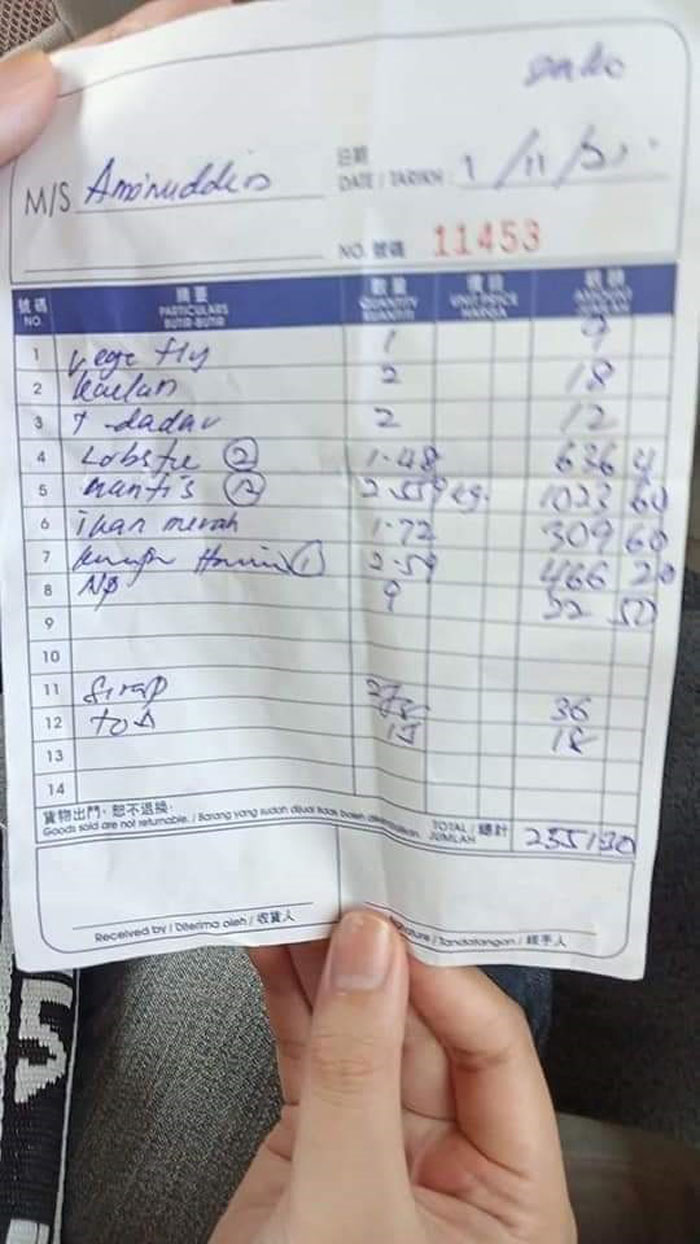 M/S Aminuddin
日期
DATE / TARIKH : 1 / 11 /
NO. 號碼 11453
號碼 NO. 摘要 PARTICULARS BUTIR-BUTIR 數量 QUANTITY KUANTITI 價目 UNIT PRICE HARGA 銀額 AMOUNT JUMLAH
1 vege fly 1 9
2 kailan 2 18
3 T dadar 2 12
4 Lobster ② 1.48 636 4
5 mantis 2.559 kg. 1023 60
6 ikan merah 1.72 309 60
7 ① 2.59 466 20
8 NP 9 22 50
9
10
11 Sirap 36
12 15 18
13
14
貨物出門，恕不退換.
Goods sold are not returnable. / Barang yang sudah dijual tidak boleh dikembalikan.
TOTAL / 總計 JUMLAH 2551 30
Received by / Diterima oleh / 收貨人
Signature / Tandatangan / 經手人